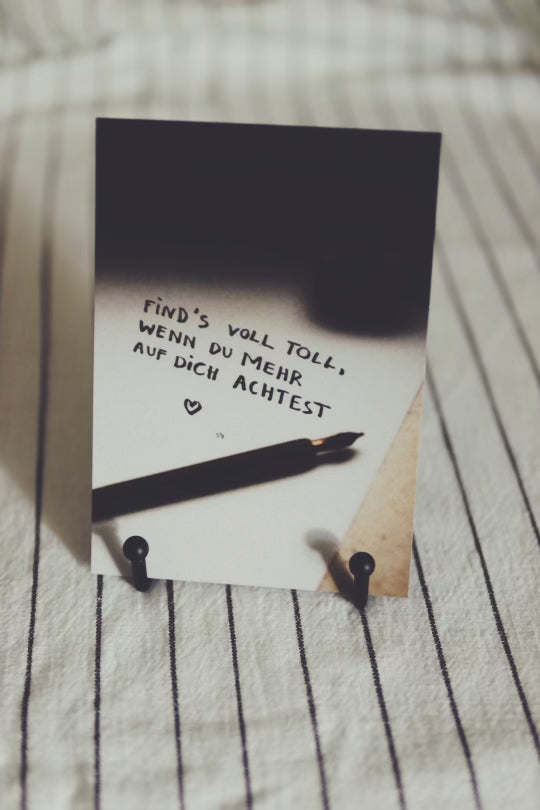 FiND'S VOLL TOLL,
WENN DU MEHR
AUF DiCH ACHTEST
♡